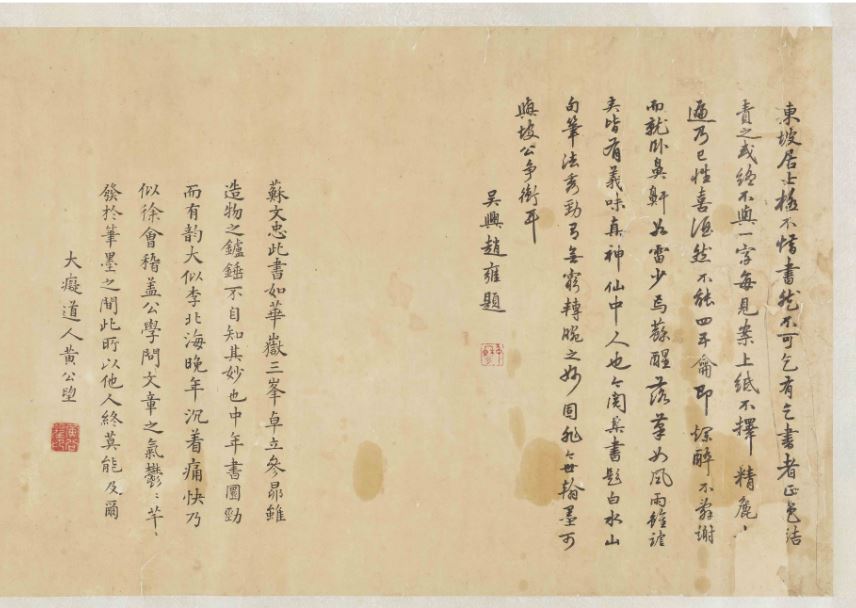 東坡居士極不惜書然不可乞有乞書者正色詰
責之或終不與一字每見案上紙不擇精麁
遍乃已性喜酒然不能四五龠即爛醉不辭謝
而就卧鼻鼾如雷少焉蘇醒落筆如風雨雖謔
弄皆有義味真神仙中人也今閱其書題白水山
句筆法秀勁有無窮轉腕之妙固非今世翰墨可
與坡公爭衡耳
吳興趙雍題
蘇文忠此書如華嶽三峯卓立參昴雖
造物之鑪錘不自知其妙也中年書圜勁
而有韵大似李北海晚年沉着痛快乃
似徐會稽盖公學問文章之氣鬱〻芊〻
發於筆墨之間此所以他人終莫能及爾
大癡道人黃公望